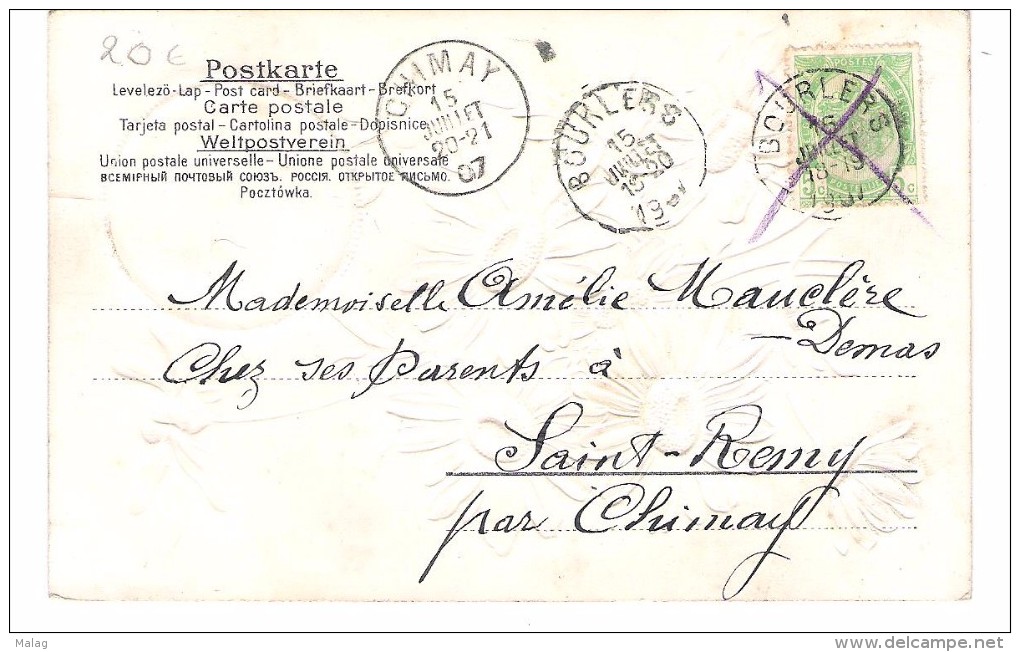 20 €
Postkarte
Levelezö-Lap - Post card - Briefkaart - Brefkort
Carte postale
Tarjeta postal - Cartolina postale - Dopisnice
Weltpostverein
Union postale universelle - Unione postale universale
ВСЕМІРНЫЙ ПОЧТОВЫЙ СОЮЗЪ. РОССІЯ. ОТКРЫТОЕ ПИСЬМО.
Pocztówka.
CHIMAY
15
JUILLET
20-21
07
BOURLERS
15
JUILLET
18-20
19
POSTES
BOURLERS
15
JUILLET
18-19
Mademoiselle Amélie Mauclère
- Demas
Chez ses Parents à
Saint-Remy
par Chimay
Malag
delcampe.net